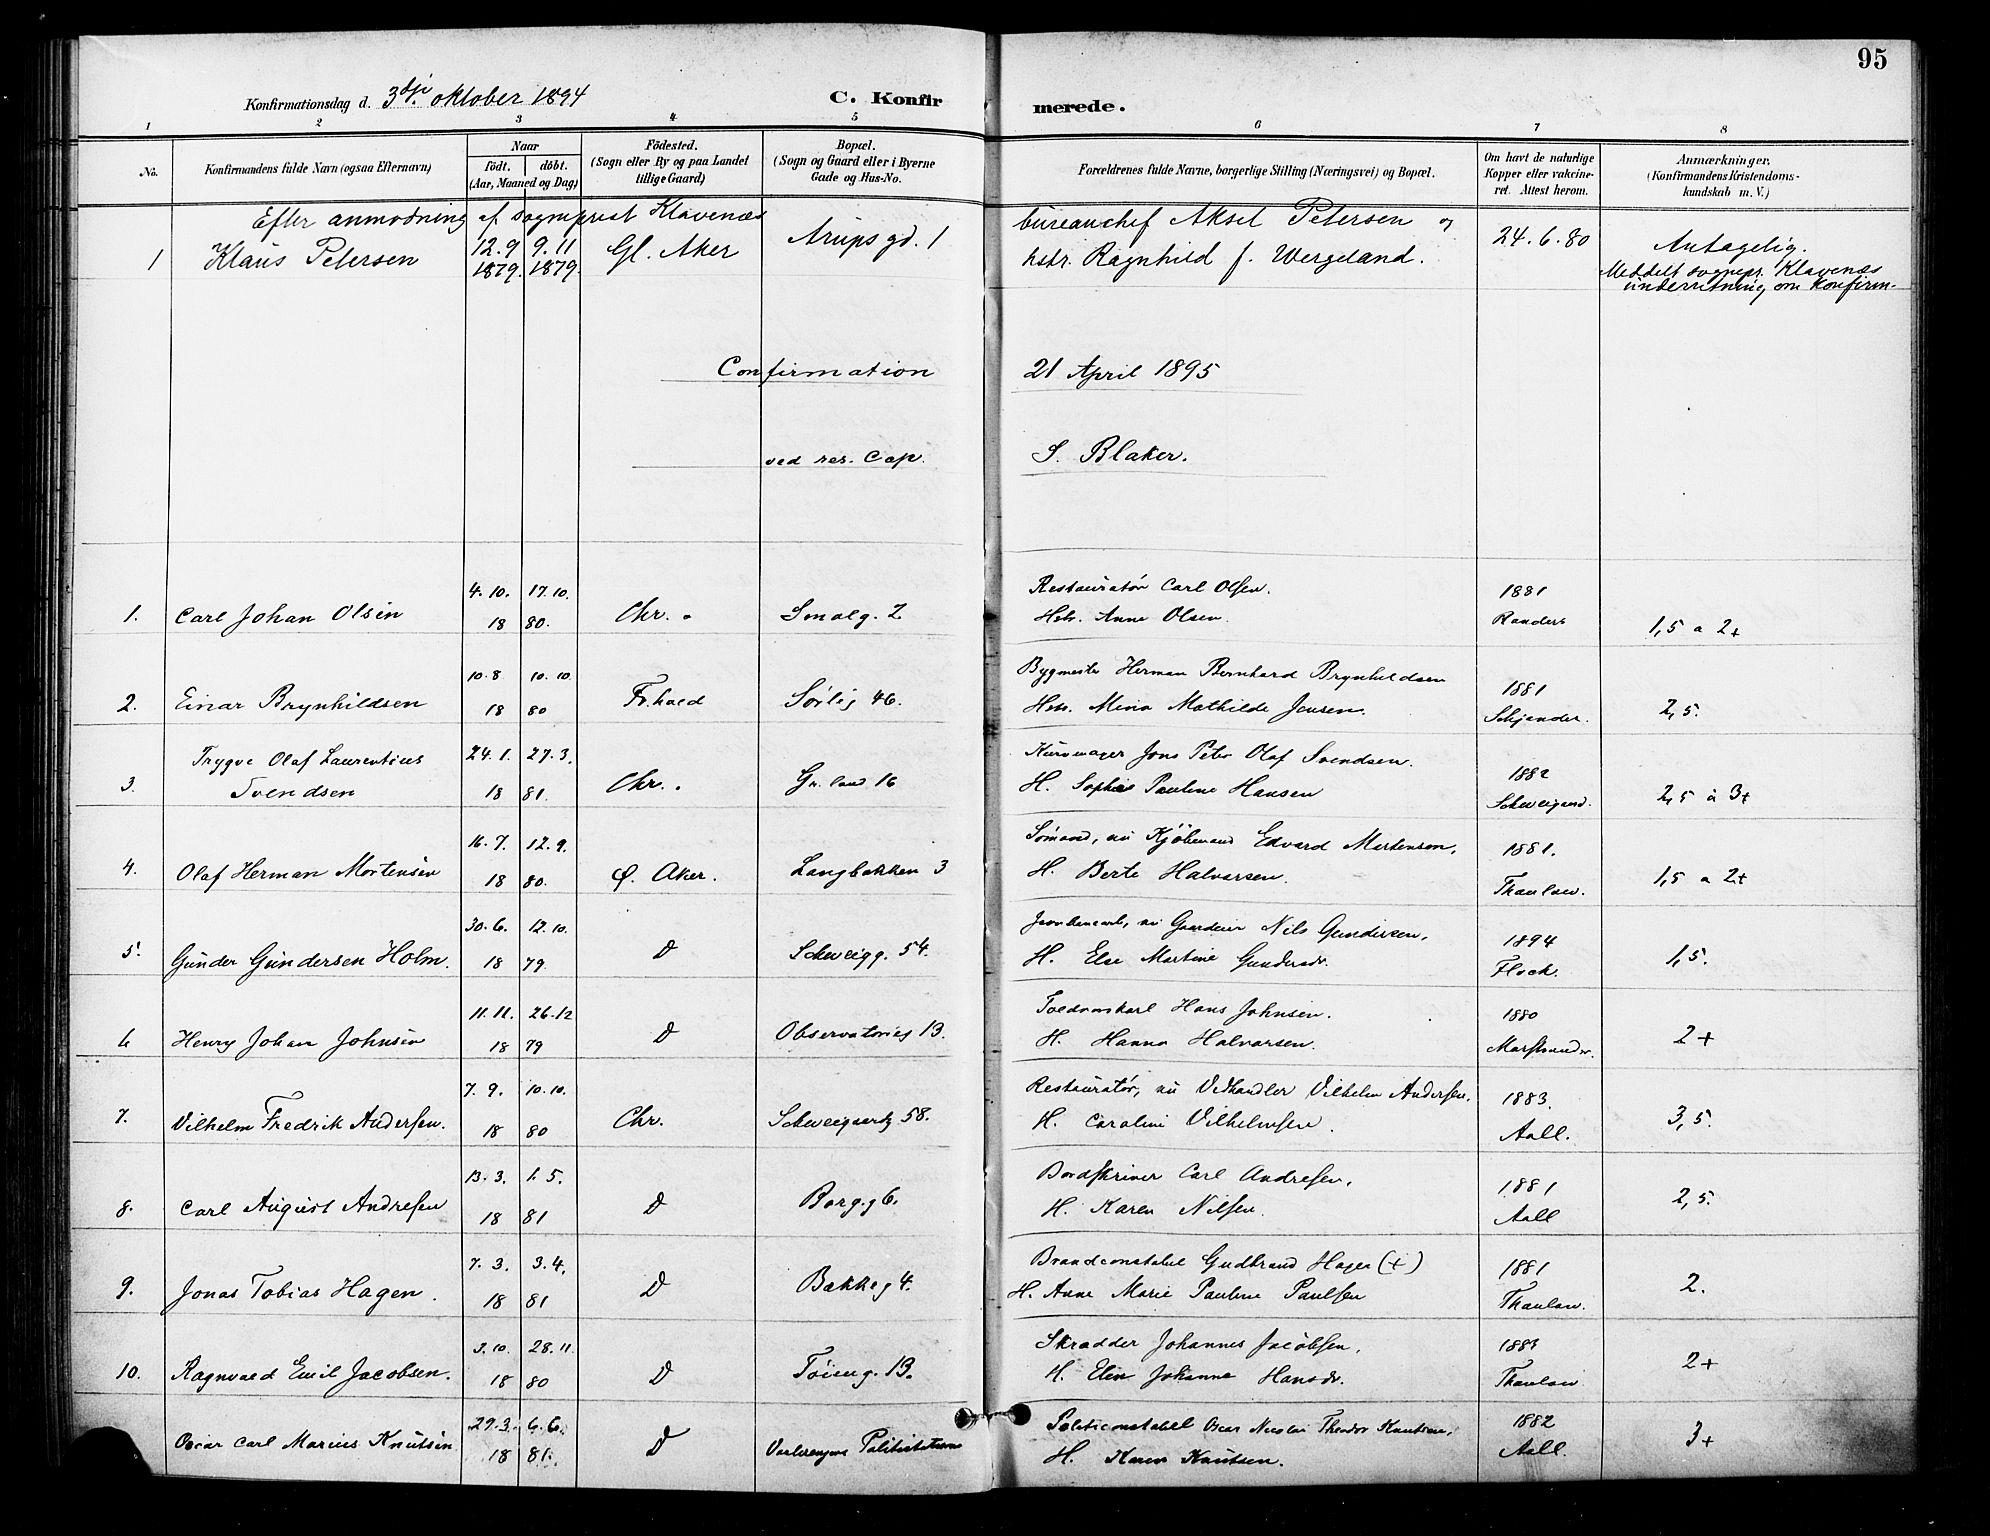 95
Konfirmationsdag d. 3dje oktober 1894
C. Konfirmerede.
1 2 3 4 5 6 7 8
No.
Konfirmandens fulde Navn (ogsaa Efternavn)
Naar
födt. döbt.
(Aar, Maaned og Dag)
Födested.
(Sogn eller By og paa Landet
tillige Gaard)
Bopæl.
(Sogn og Gaard eller i Byerne
Gade og Hus-No.
Forældrenes fulde Navne, borgerlige Stilling (Næringsvei) og Bopæl.
Om havt de naturlige
Kopper eller vakcine-
ret. Attest herom.
Anmærkninger.
(Konfirmandens Kristendoms-
kundskab m. V.)
Efter anmodning af sogneprest Klavenæs
1 Klaus Petersen 12.9 1879. 9.11 1879. Gl. Aker Arups gd. 1
bureauchef Aksel Petersen og
hstr. Ragnhild f. Wergeland.
24.6.80
Antagelig.
Meddelt sognepr. Klavenæs
underretning om Konfirm.
Confirmation 21 April 1895
ved res. Cap. S. Blaker.
1. Carl Johan Olsen 4.10. 17.10. 18 80. Chr. Smalg. 2
Restauratør Carl Olsen.
Hstr. Anne Olsen.
1881
Randers
1,5 a 2+
2. Einar Brynhildsen 10.8 10.10. 18 80 Fr.hald Sørlig 46.
Bygmester Herman Bernhard Brynhildsen
Hstr. Mina Mathilde Jensen.
1881
2,5.
3. Trygve Olaf Laurentius
Svendsen 24.1. 27.3. 18 81. Chr. Gr.land 16
Kurvmager Jens Peter Olaf Svendsen.
H. Sophie Pauline Hansen
1882
Schweigaard.
2,5 à 3+
4. Olaf Herman Mortensen 16.7. 12.9. 18 80. Ø. Aker. Langbakken 3
Sømand, nu Kjøbmand Edvard Mortensen,
H. Berte Halvorsen.
1881.
Thaulow.
1,5 a 2+
5. Gunder Gundersen Holm. 30.6. 12.10. 18 79. D Schweigg. 54.
nu Gaardeier Nils Gundersen,
H. Else Martine Gundersdr.
1894
Flock.
1,5.
6 Henry Johan Johnsen 11.11. 26.12 18 79 D Observatorieg 13.
Toldopskarl Hans Johnsen.
H. Hanna Halvorsen.
1880
Marstrander.
2+
7. Vilhelm Fredrik Andersen. 7.9. 10.10. 18 80 Chr. Schweigaardsg 58.
Restauratør, nu Vedhandler Vilhelm Andersen.
H. Caroline Vilhelmsen.
1883.
Aall.
3,5.
8. Carl August Andresen 13.3. 1.5. 18 81 D Borg.g 6.
Bordskriver Carl Andresen.
H. Karen Nilsen.
1881
Aall
2,5.
9. Jonas Tobias Hagen. 7.3. 3.4. 18 81 D Bakkeg 4.
Brandconstabel Gudbrand Hagen (+)
H. Anne Marie Pauline Paulsen
1881
Thaulow.
2.
10. Ragnvald Emil Jacobsen. 3.10. 28.11. 18 80 D Tøieng. 13.
Skrædder Johannes Jacobsen.
H. Elen Johanne Hansdr.
Thaulow
2+
Oscar Carl Marius Knutsen 29.3. 6.6. 18 81. D Vaalerengens Politistation
Politiconstabel Oscar Nicolai Theodor Knutsen,
H. Karen Knutsen.
1882
Aall.
3+